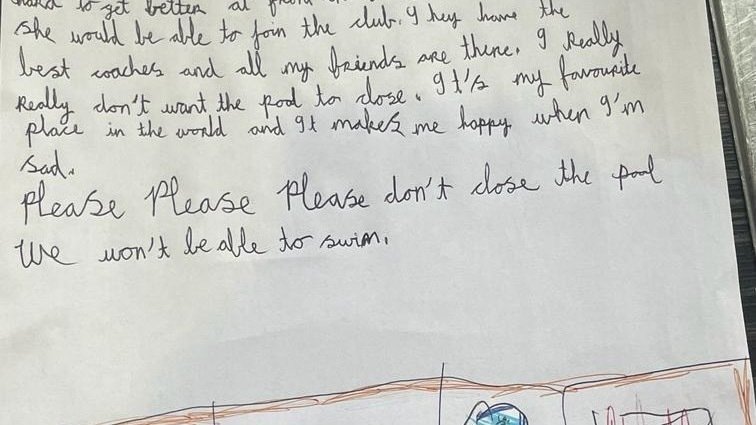 to get better at
she would be able to join the club. They have the
best coaches and all my friends are there. I Really
Really don't want the pool to close. It's my favourite
place in the world and It makes me happy when I'm
sad.
Please Please Please don't close the pool
We won't be able to swim.